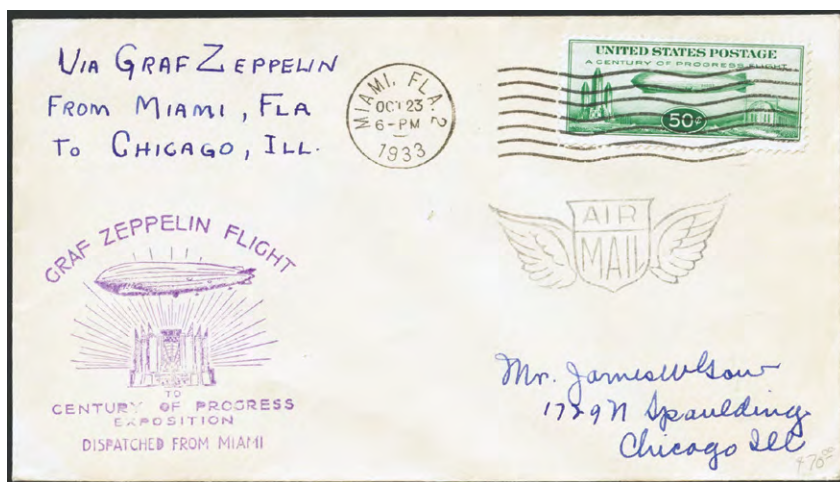 VIA GRAF ZEPPELIN
FROM MIAMI, FLA
TO CHICAGO, ILL.
MIAMI, FLA. 2
OCT 23
6-PM
1933
UNITED STATES POSTAGE
A CENTURY OF PROGRESS FLIGHT
50¢
AIR
MAIL
GRAF ZEPPELIN FLIGHT
TO
CENTURY OF PROGRESS
EXPOSITION
DISPATCHED FROM MIAMI
Mr. James
1729 N Spaulding
Chicago Ill